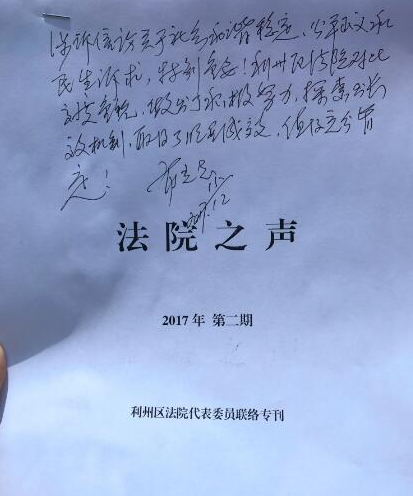 涉诉信访关乎社会和谐稳定，公平正义和
民生诉求，特别重要！利州区法院对此
高度重视，做出了积极努力，探索出长
效机制，取得了明显成效，值得充分肯
定！
法院之声
2017年 第二期
利州区法院代表委员联络专刊